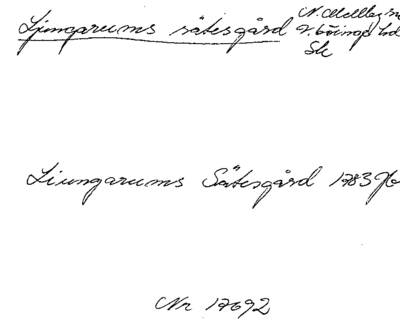 Ljungarums sätesgård N. Mellby sn
V. Göinge hd
Sk
Liungarums Sätesgård 1783
Nr 17692